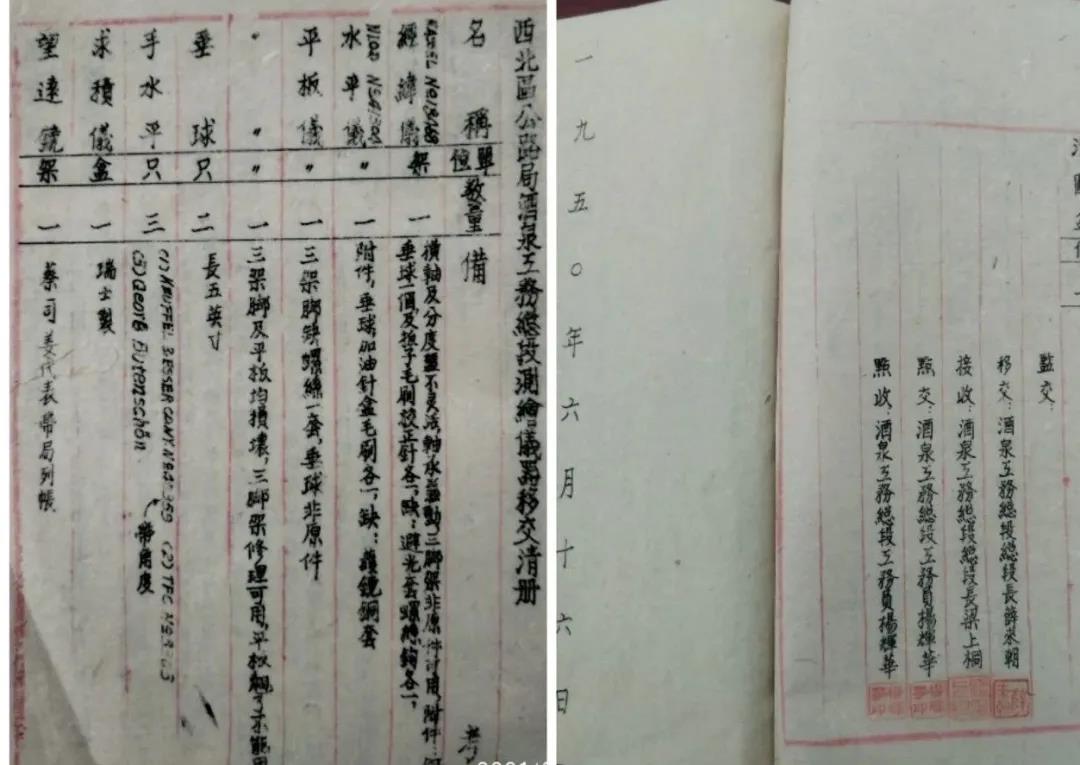 西北區公路局酒泉工務總段測繪儀器移交清册
名稱 單位 數量 備 考
經緯儀 架 一 橫軸及分度盤不灵活,軸承鬆動,三脚架非原件可用,附件:
垂球一個,及扳子毛刷校正針各一,缺:避光套螺絲鉤各一,
水平儀 〃 一 附件,垂球加油針盒毛刷各一,缺:護鏡銅套
平板儀 〃 一 三架脚缺螺絲一套,垂球非原件
〃 〃 一 三架脚及平板均損壞,三脚架修理可用,平板
垂球 只 二 長五英寸
手水平 只 三 (1) KEUFFEL & ESSER (2)
(3) Georg Butenschön 帶角度
求積儀 盒 一 瑞士製
望遠鏡 架 一 蔡司姜代表帶局列帳
一九五〇年六月十六日
監交:
移交:酒泉工務總段總段長薛
接收:酒泉工務總段總段長梁上桐
點交:酒泉工務總段工務員楊輝華
點收:酒泉工務總段工務員楊輝華